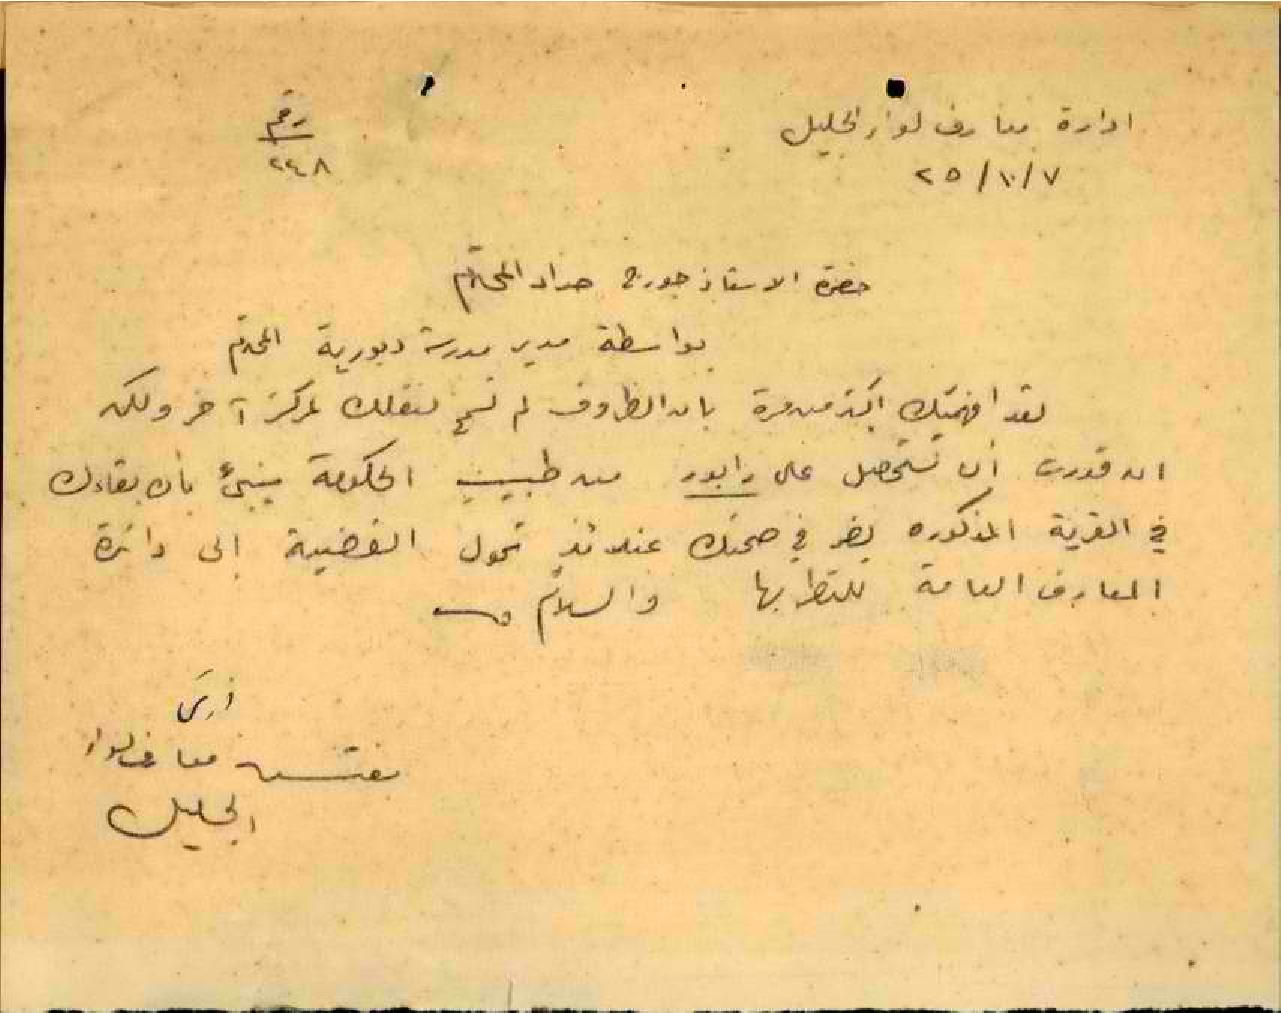 ادارة معارف لواء الجليل
رقم
٢٤٨
٢٥/١٠/٧
حضرة الاستاذ جورج حداد المحترم
بواسطة مدير مدرسة دبورية المحترم
لقد افهمتك اكثر من مرة بان الظروف لم تسمح لنقلك لمركز آخر ولكن
ان قدرت ان تستحصل على رابور من طبيب الحكومة ينبئ بأن بقاءك
في القرية المذكوره يضر في صحتك عندئذٍ تحول القضية الى دائرة
المعارف العامة للنظر بها والسلام
مفتش معارف لواء
الجليل